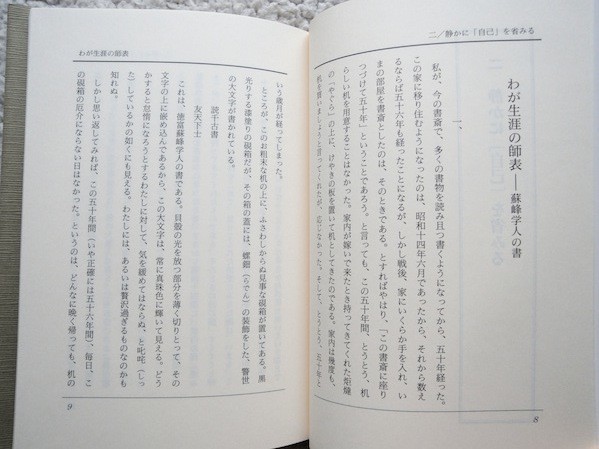 二／静かに「自己」を省みる
わが生涯の師表――蘇峰学人の書
一、
私が、今の書斎で、多くの書物を読み且つ書くようになってから、五十年経った。
この家に移り住むようになったのは、昭和十四年六月であったから、それから数え
るならば五十六年も経ったことになるが、しかし戦後、家にいくらか手を入れ、い
まの部屋を書斎としたのは、そのときである。とすればやはり、「この書斎に座り
つづけて五十年」ということであろう。と言っても、この五十年間、とうとう、机
らしい机を用意することはなかった。家内が嫁いで来たとき持ってきてくれた炬燵
の「やぐら」の上に、けやきの板を置いて机としてきたのである。家内は幾度も、
机を買いましょうと言ってくれたが、応じなかった。そして、とうとう、五十年と
8
わが生涯の師表
いう歳月が経ってしまった。
ところが、このお粗末な机の上に、ふさわしからぬ見事な硯箱が置いてある。黒
光りする漆塗りの硯箱だが、その箱の蓋には、螺鈿（らでん）の装飾をした、警世
の大文字が書かれている。
読千古書
友天下士
これは、徳富蘇峰学人の書である。貝殻の光を放つ部分を薄く切りとって、その
文字の上に嵌め込んである。この大文字は、常に真珠色に輝いて見える。どう
かすると怠惰になろうとするわたしに対して、気を緩めてはならぬ、と叱咤（しっ
た）しているかの如くにも見える。わたしには、あるいは贅沢過ぎるものなのかも
知れぬ。
しかし思い返してみれば、この五十年間（いや正確には五十六年間）、毎日、こ
の硯箱の厄介にならない日はなかった。というのは、どんなに晩く帰っても、机の
9